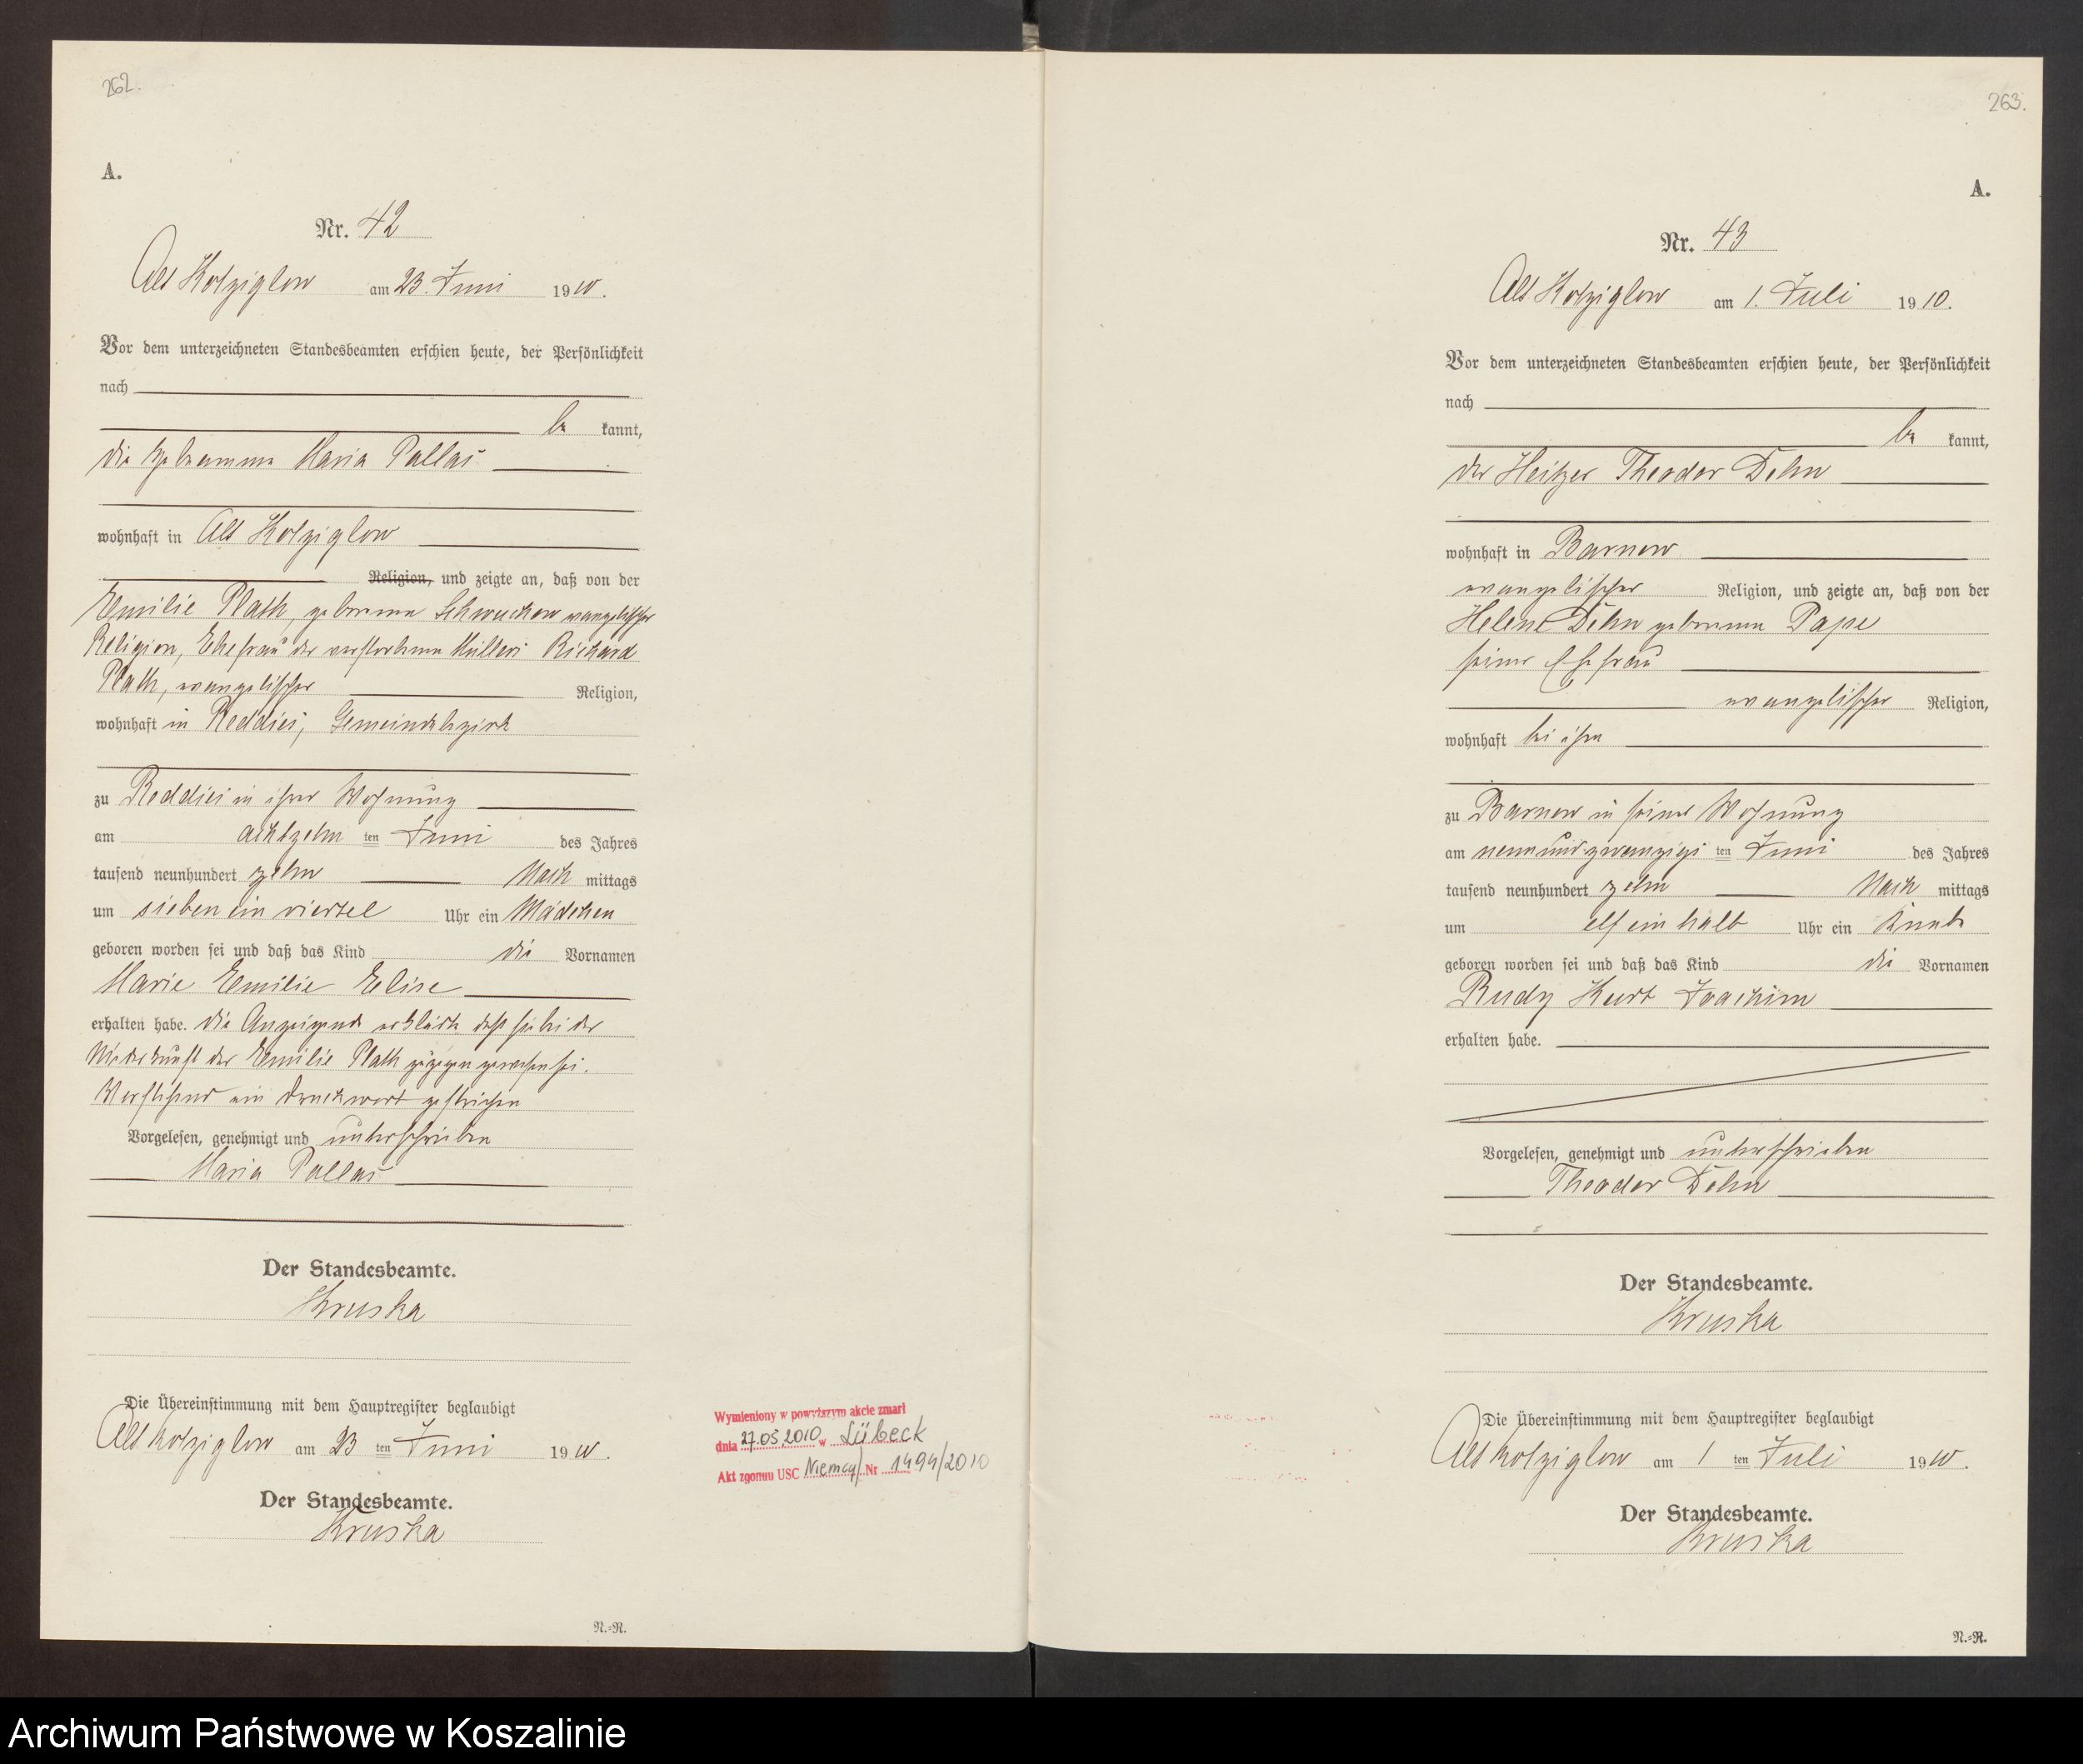 262.
A.
Nr. 42
Alt Kolziglow am 23. Juni 1910.
Vor dem unterzeichneten Standesbeamten erschien heute, der Persönlichkeit
nach
be kannt,
die Hebamme Maria Pallas
wohnhaft in Alt Kolziglow
Religion, und zeigte an, daß von der
Emilie Plath, geborenen Schwuchow evangelischer
Religion, Ehefrau des verstorbenen Müllers Richard
Plath, evangelischer Religion,
wohnhaft in Reddies, Gemeindebezirk
zu Reddies in ihrer Wohnung
am achtzehn ten Juni des Jahres
tausend neunhundert zehn Nach mittags
um sieben ein viertel Uhr ein Mädchen
geboren worden sei und daß das Kind die Vornamen
Marie Emilie Elise
erhalten habe. Die Anzeigende erklärte daß sie bei der
Niederkunft der Emilie Plath zugegen gewesen sei.
Vorstehend ein Druckwort gestrichen
Vorgelesen, genehmigt und unterschrieben
Maria Pallas
Der Standesbeamte.
Kruska
Die Übereinstimmung mit dem Hauptregister beglaubigt
Alt Kolziglow am 23 ten Juni 1910.
Der Standesbeamte.
Kruska
N.-R.
Wymieniony w powyższym akcie zmarł
dnia 27.05.2010 w Lübeck
Akt zgonu USC Niemcy Nr 1494/2010
263.
A.
Nr. 43
Alt Kolziglow am 1. Juli 1910.
Vor dem unterzeichneten Standesbeamten erschien heute, der Persönlichkeit
nach
be kannt,
der Heitzer Theodor Dehn
wohnhaft in Barnow
evangelischer Religion, und zeigte an, daß von der
Helene Dehn geborenen Pape
seiner Ehefrau
evangelischer Religion,
wohnhaft bei ihm
zu Barnow in seiner Wohnung
am neunundzwanzigs ten Juni des Jahres
tausend neunhundert zehn Nach mittags
um elf ein halb Uhr ein Knabe
geboren worden sei und daß das Kind die Vornamen
Rudy Kurt Joachim
erhalten habe.
Vorgelesen, genehmigt und unterschrieben
Theodor Dehn
Der Standesbeamte.
Kruska
Die Übereinstimmung mit dem Hauptregister beglaubigt
Alt Kolziglow am 1 ten Juli 1910.
Der Standesbeamte.
Kruska
N.-R.
Archiwum Państwowe w Koszalinie